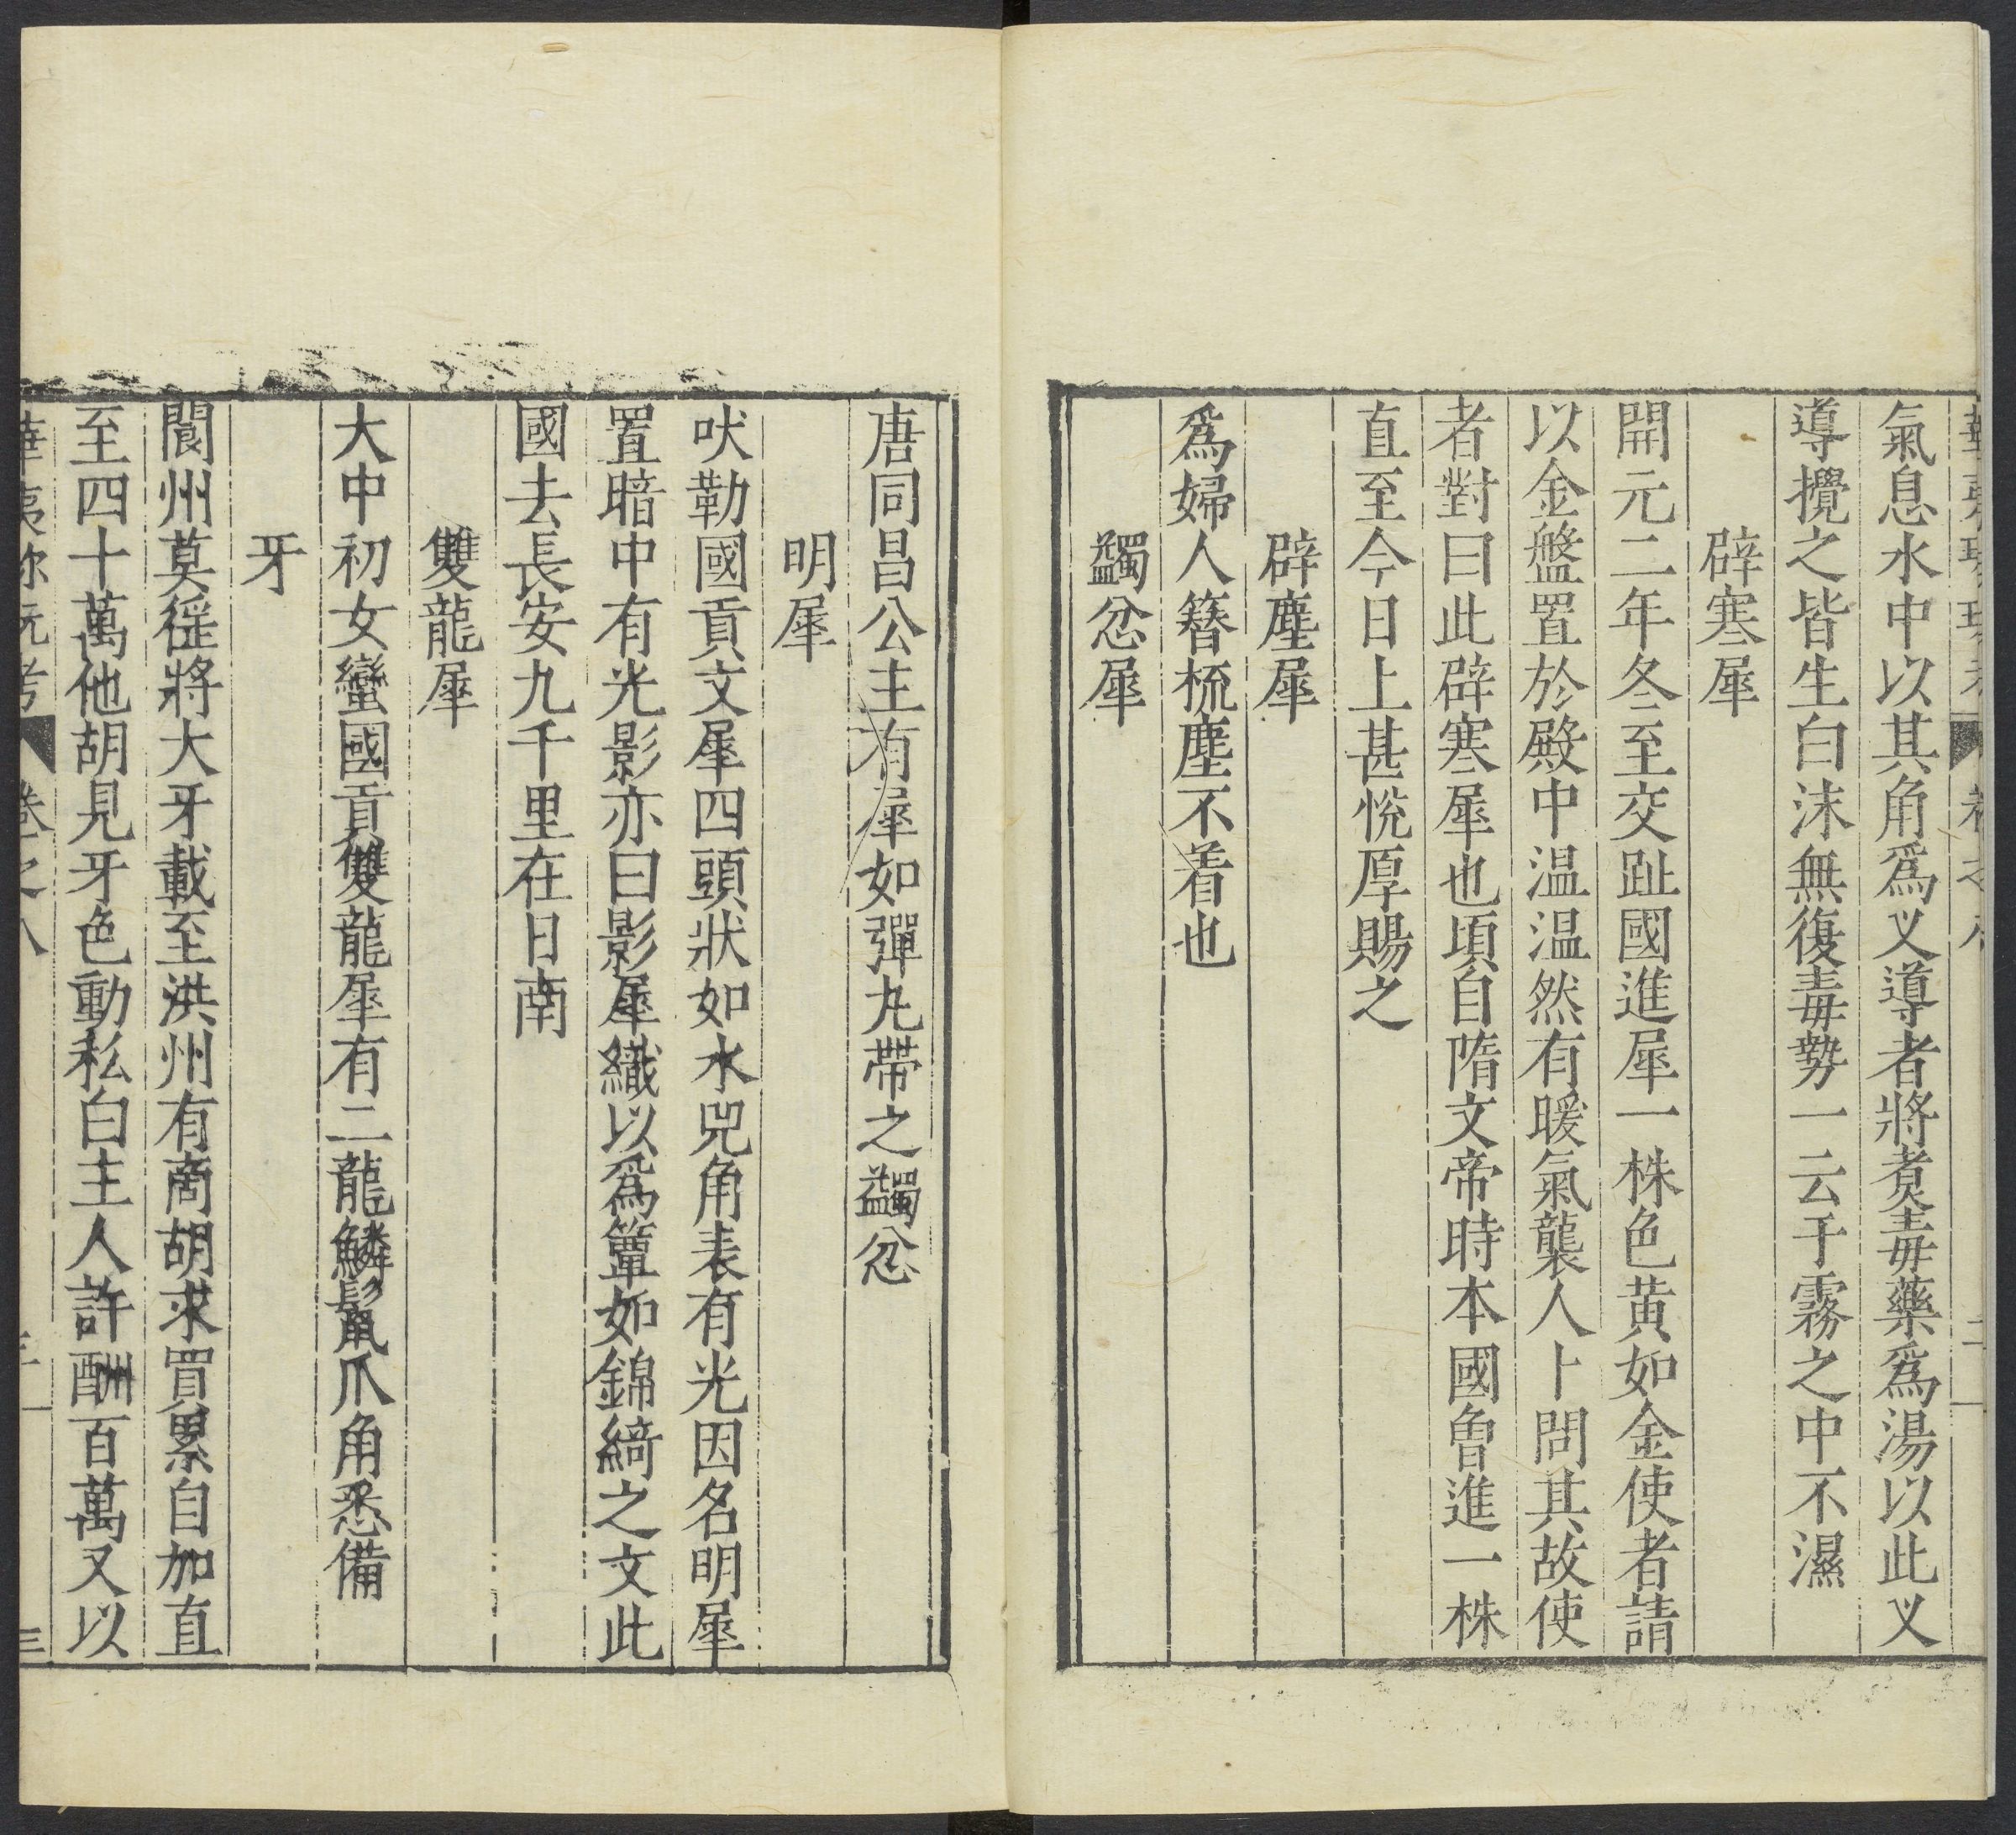 氣息水中以其角爲乂導者將煑毒藥爲湯以此乂
導攪之皆生白沫無復毒勢一云于霧之中不濕
辟寒犀
開元二年冬至交趾國進犀一株色黄如金使者請
以金盤置於殿中温温然有暖氣襲人上問其故使
者對曰此辟寒犀也頃自隋文帝時本國曾進一株
直至今日上甚悅厚賜之
辟塵犀
爲婦人簪梳塵不着也
蠲忿犀
唐同昌公主有犀如彈丸帶之蠲忿
明犀
吠勒國貢文犀四頭狀如水兕角表有光因名明犀
置暗中有光影亦曰影犀織以爲簟如錦綺之文此
國去長安九千里在日南
雙龍犀
大中初女蠻國貢雙龍犀有二龍鱗鬣爪角悉備
牙
閬州莫徭將大牙載至洪州有商胡求買累自加直
至四十萬他胡見牙色動私白主人許酬百萬又以
華夷珍玩考 卷之八 三